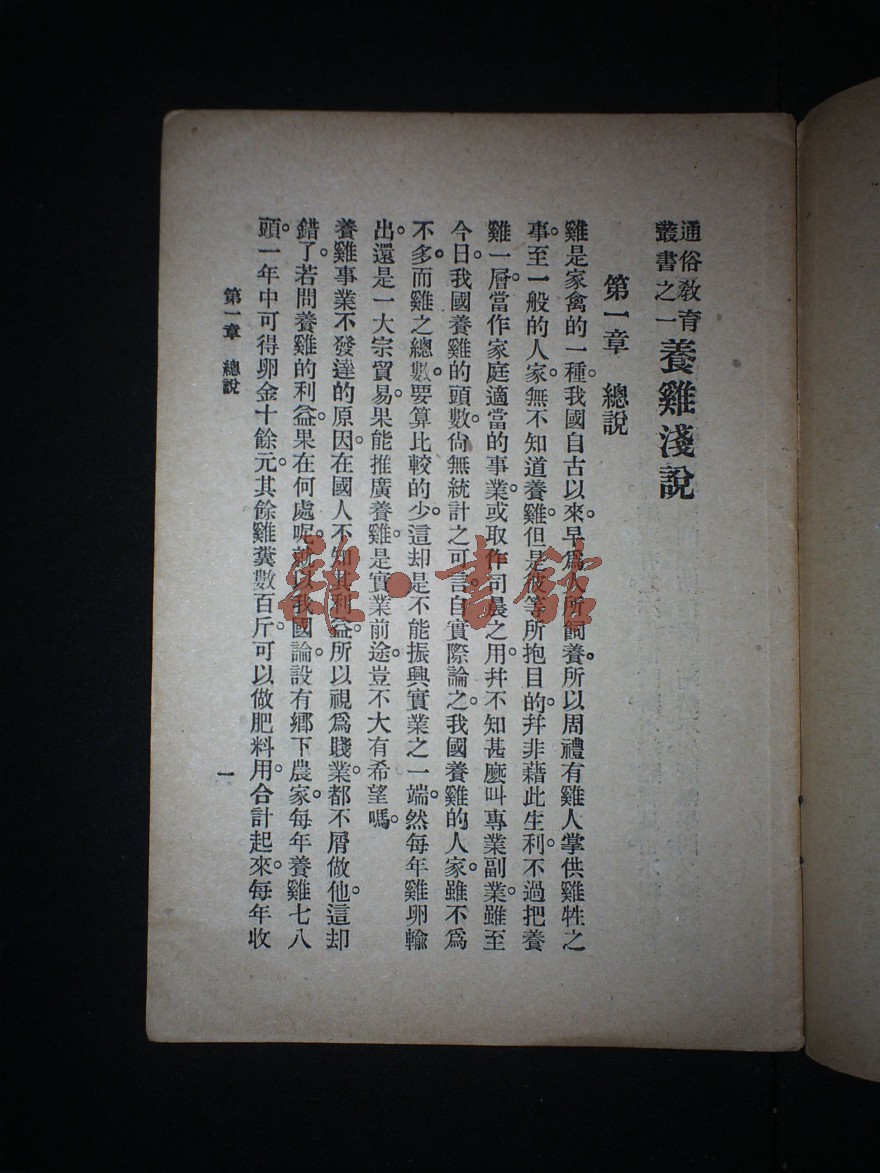 通俗教育
叢書之一
養雞淺說
第一章 總說
雞是家禽的一種。我國自古以來。早爲人所飼養。所以周禮有雞人掌供雞牲之
事。至一般的人家。無不知道養雞。但是彼等所抱目的。幷非藉此生利。不過把養
雞一層。當作家庭適當的事業。或取作司晨之用。幷不知甚麼叫專業副業。雖至
今日。我國養雞的頭數。尙無統計之可言。自實際論之。我國養雞的人家。雖不爲
不多。而雞之總數。要算比較的少。這却是不能振興實業之一端。然每年雞卵輸
出。還是一大宗貿易。果能推廣養雞。是實業前途。豈不大有希望嗎。
養雞事業不發達的原因。在國人不知其利益。所以視爲賤業。都不屑做他。這却
錯了。若問養雞的利益。果在何處呢。就以我國論。設有鄉下農家。每年養雞七八
頭。一年中可得卵金十餘元。其餘雞糞數百斤。可以做肥料用。合計起來。每年收
第一章 總說
一
雜·書館